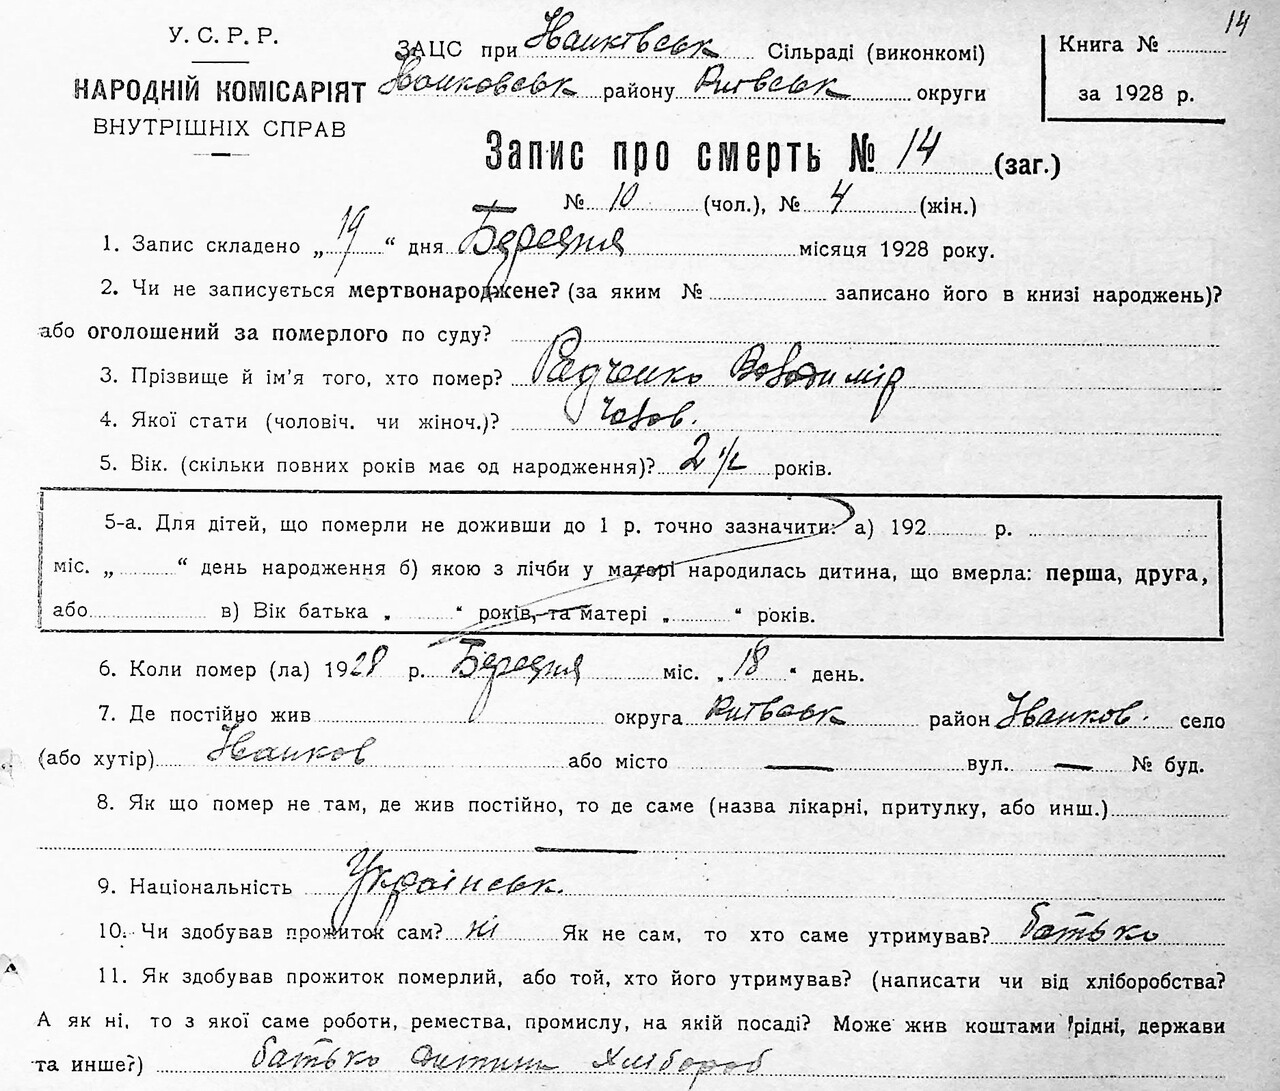 14
У. С. Р. Р.
НАРОДНІЙ КОМІСАРІЯТ
ВНУТРІШНІХ СПРАВ
ЗАЦС при Іванковськ Сільраді (виконкомі)
Іванковськ району Київськ округи
Книга №
за 1928 р.
Запис про смерть № 14 (заг.)
№ 10 (чол.), № 4 (жін.)
1. Запис складено „19“ дня Березня місяця 1928 року.
2. Чи не записується мертвонароджене? (за яким № записано його в книзі народжень)?
або оголошений за померлого по суду?
3. Прізвище й ім'я того, хто помер? Радченко Володимір
4. Якої стати (чоловіч. чи жіноч.)? Чолов.
5. Вік. (скільки повних років має од народження)? 2 1/2 років.
5-а. Для дітей, що померли не доживши до 1 р. точно зазначити: а) 192 р.
міс. „ “ день народження б) якою з лічби у матері народилась дитина, що вмерла: перша, друга,
або в) Вік батька „ “ років, та матері „ “ років.
6. Коли помер (ла) 1928 р. Березня міс. „18“ день.
7. Де постійно жив округа Київськ район Іванков. село
(або хутір) Іванков або місто — вул. — № буд.
8. Як що помер не там, де жив постійно, то де саме (назва лікарні, притулку, або инш.)
—
9. Національність Українськ.
10. Чи здобував прожиток сам? ні Як не сам, то хто саме утримував? батько
11. Як здобував прожиток померлий, або той, хто його утримував? (написати чи від хліборобства?
А як ні, то з якої саме роботи, ремества, промислу, на якій посаді? Може жив коштами рідні, держави
та инше?) батько дитини хлібороб